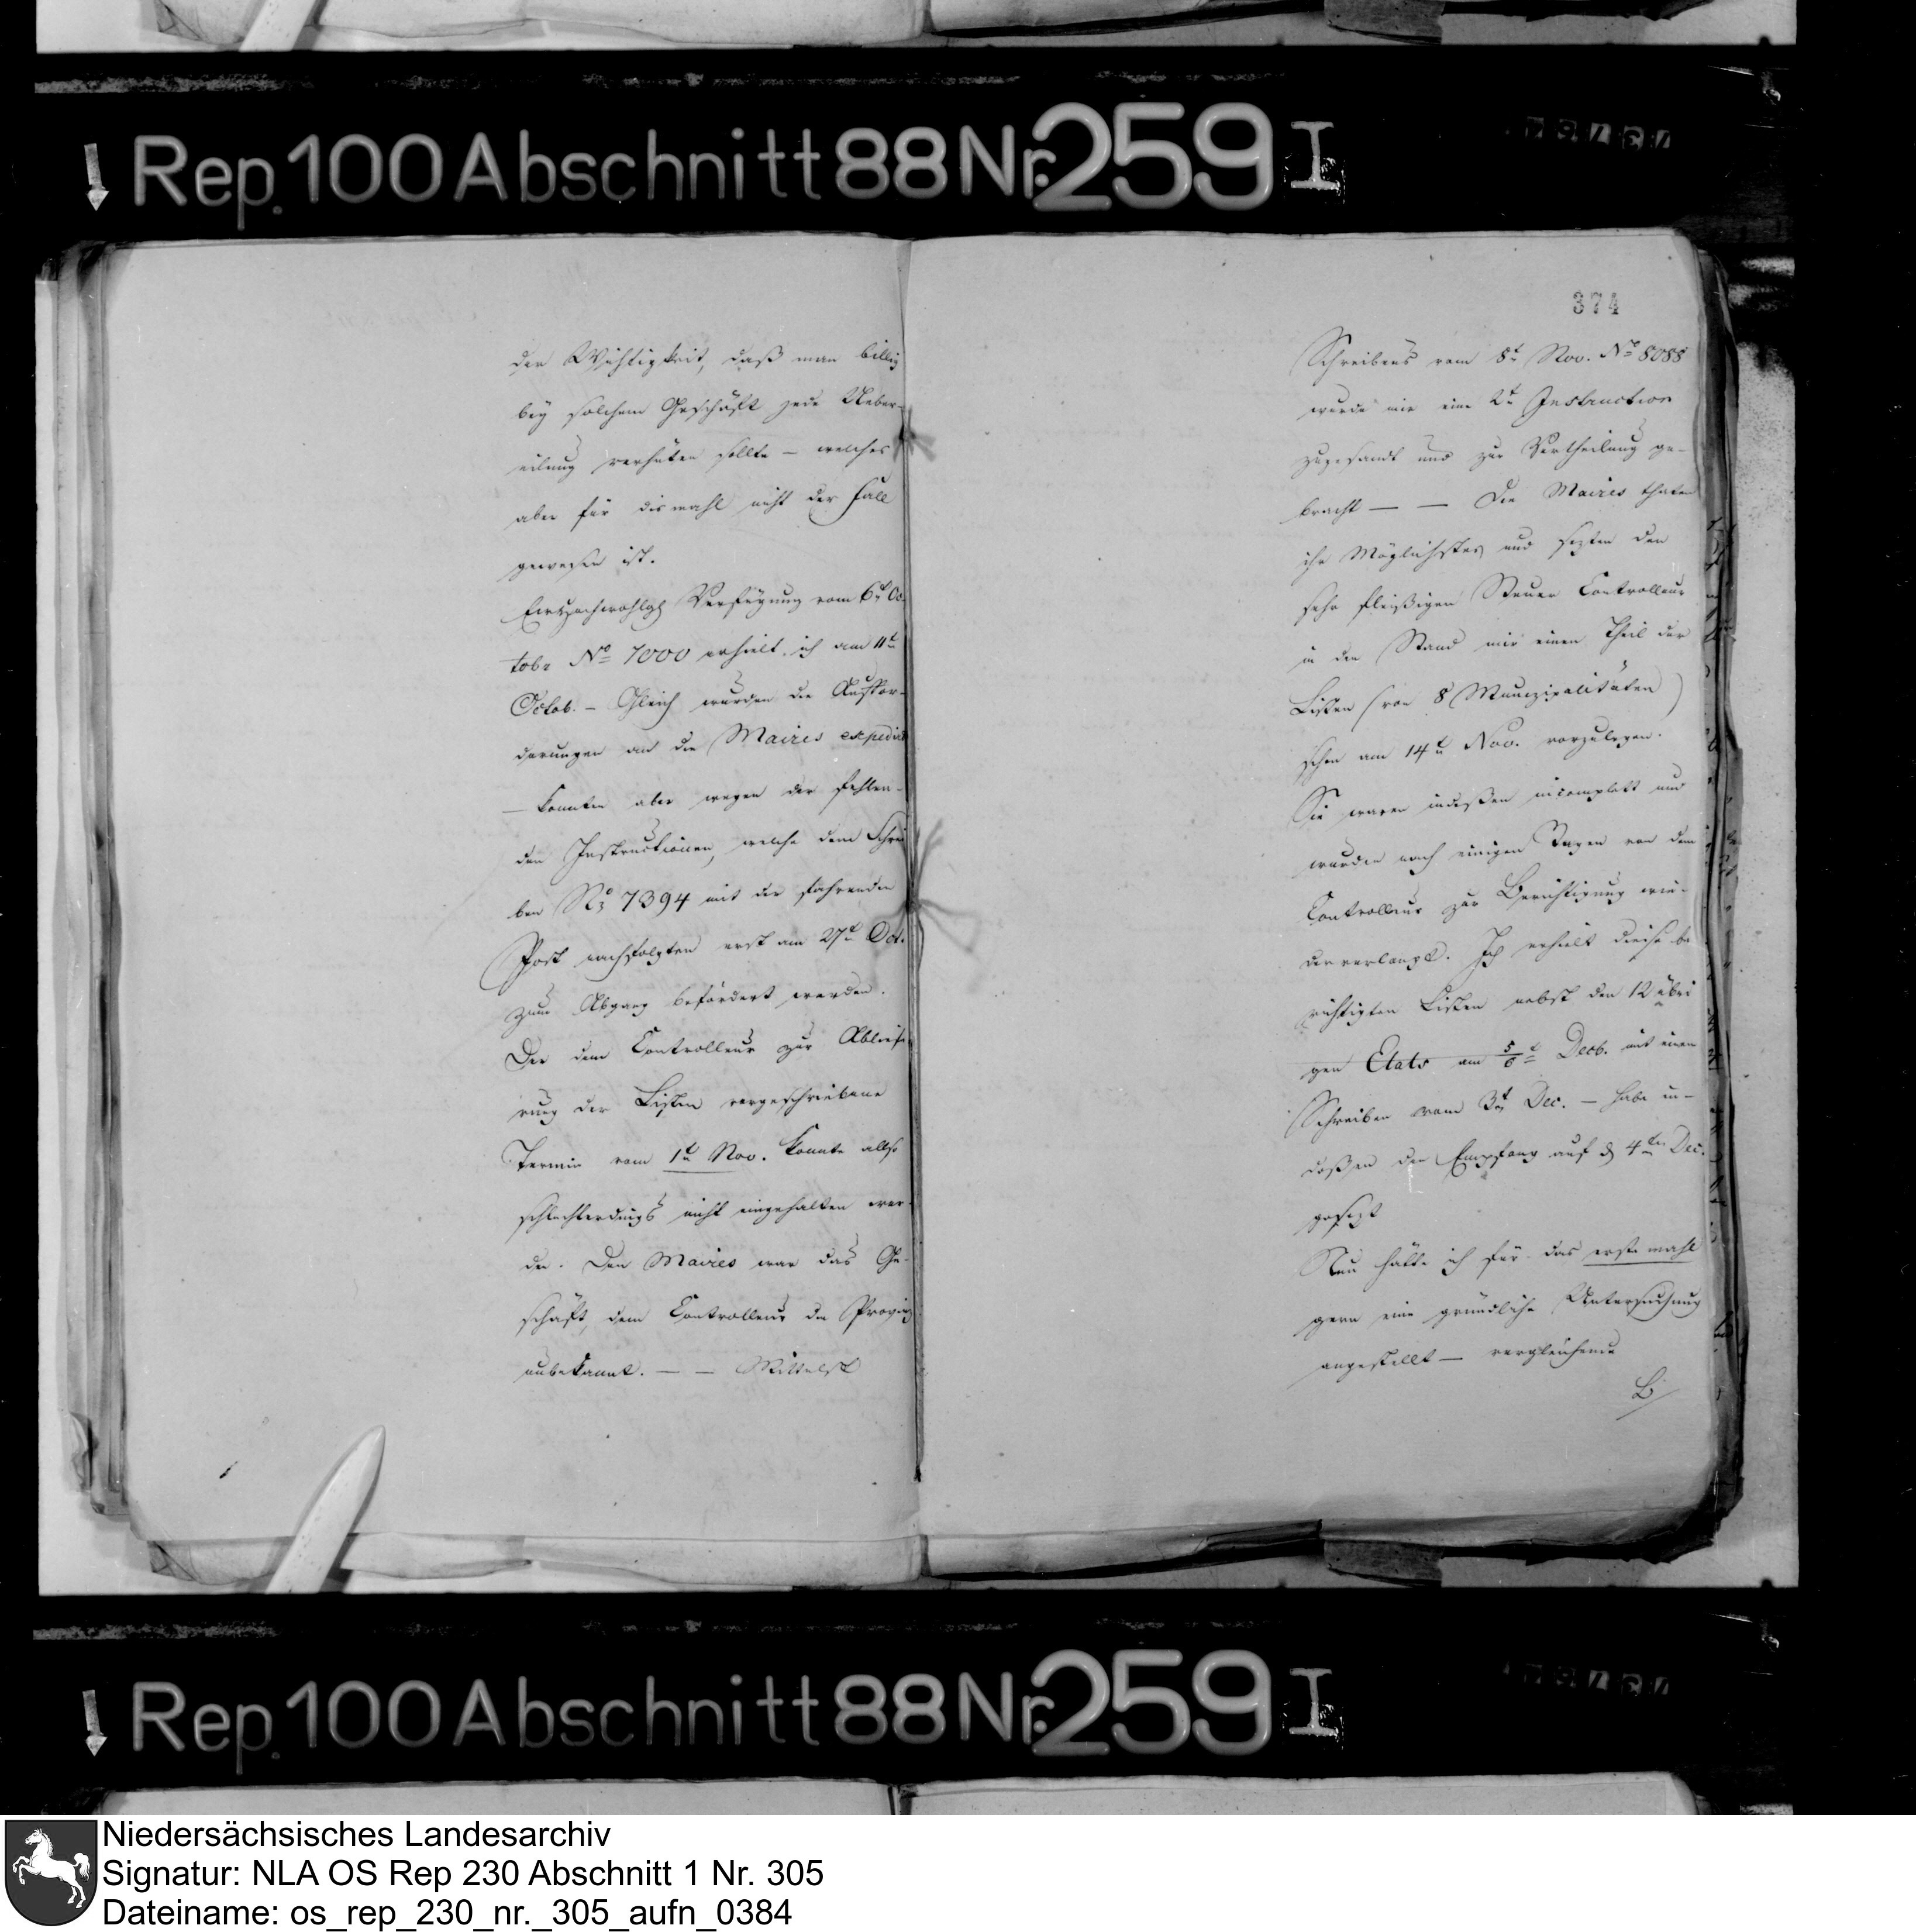 Rep. 100 Abschnitt 88 Nr. 259 I
der Wichtigkeit, daß man billig
bey solchem Geschäft jede Ueber-
eilung verhüten sollte – welches
aber für dismahl nicht der Fall
gewesen ist.
Verfügung vom 6t Oc-
tobr No 7000 erhielt ich am 11t
Octob. – Gleich wurden die Auffor-
derungen an die Maires expedirt
– konnten aber wegen der fehlen-
den Instructionen, welche dem Schrei
ben No 7394 mit der fahrenden
Post nachfolgten erst am 27t Oct.
zum Abgang befördert werden.
Der dem Controlleur zur Ablief
rung der Listen vorgeschriebene
Termin vom 1t Nov. konnte also
schlechterdings nicht eingehalten wer-
den. Den Maires war das Ge-
schäft, dem Controlleur die Provinz
unbekannt. — — Mittelst
374
Schreibens vom 8t Nov. No 8088
wurde mir eine 2te Instruction
zugesandt und zur Vertheilung ge-
bracht — — Die Maires thaten
ihr Möglichstes und sezten den
sehr fleißigen Steuer Controlleur
in den Stand mir einen Theil der
Listen (von 8 Munizipalitäten)
schon am 14t Nov. vorzulegen.
Sie waren indeßen incomplett und
wurden nach einigen Tagen von dem
Controlleur zur Berichtigung wie-
derverlangt. Ich erhielt diese be
richtigten Listen nebst den 12 übri
gen Etats am 5/6t Decb. mit einem
Schreiben vom 3t Dec. – habe in-
deßen den Empfang auf d 4ten Dec.
gesezt
Nun hätte ich für das erste mahl
gern eine gründliche Untersuchung
angestellt — vergleichende
Rep. 100 Abschnitt 88 Nr. 259 I
Niedersächsisches Landesarchiv
Signatur: NLA OS Rep 230 Abschnitt 1 Nr. 305
Dateiname: os_rep_230_nr._305_aufn_0384